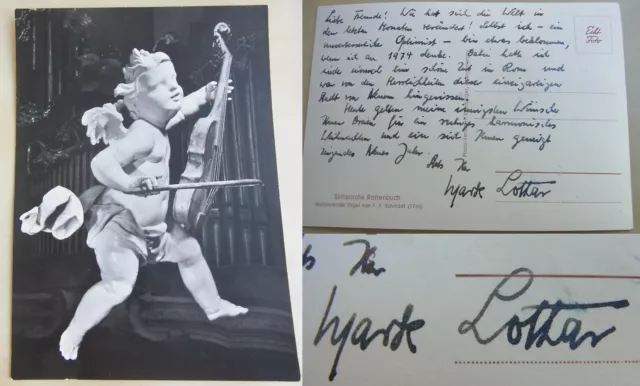 Liebe Freunde! Wie hat sich die Welt in
den letzten Monaten verändert! Selbst ich – ein
unentwegter Optimist – bin etwas beklommen,
wenn ich an 1974 denke. Dabei hatte ich
noch einmal eine schöne Zeit in Rom und
war von den Herrlichkeiten dieser einzigartigen
Stadt von Neuem hingerissen.
Heute gelten meine innigsten Wünsche
Ihnen Beiden für ein ruhiges harmonisches
Weihnachten und ein sich Ihnen geneigt
zeigendes Neues Jahr.
Stets Ihr
Mark Lothar
Echt
Foto
Stiftskirche Rottenbuch
Musizierender Engel von F. X. Schmädl (1740)
Ihr
Mark Lothar